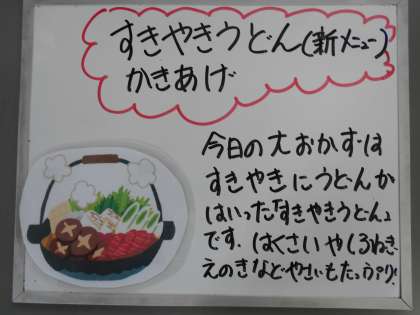 すきやきうどん(新メニュー)
かきあげ
今日の大おかずは
すきやきにうどんが
はいった「すきやきうどん」
です。はくさいやしろねぎ、
えのきなどやさいもたっぷり!